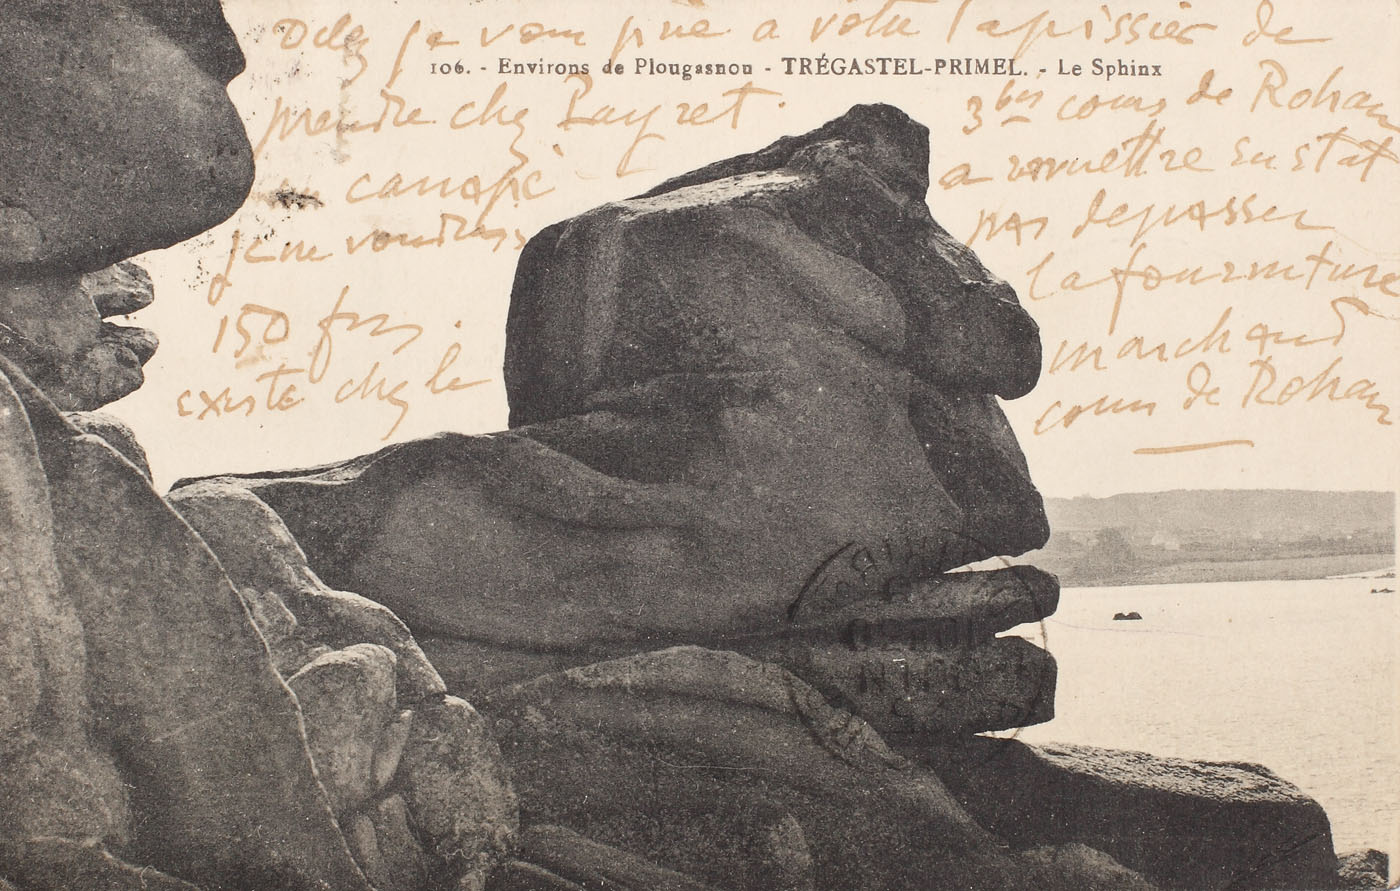 je vous prie a votre tapissier de
106. - Environs de Plougasnou - TRÉGASTEL-PRIMEL. - Le Sphinx
prendre chez
canapé
je ne voudrais
150 frs.
existe chez le
3 bis cours de Rohan
a remettre en état
pas depasser
la fourniture
marchand
cour de Rohan